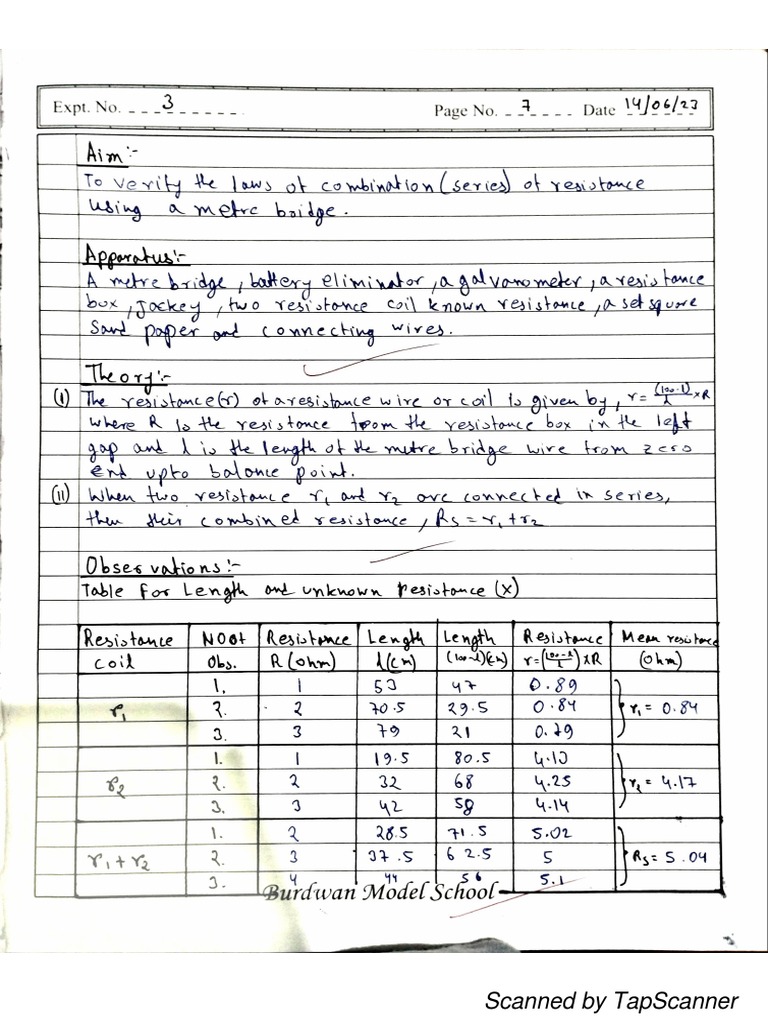 Expt. No. 3 Page No. 7 Date 14/06/23
Aim:-
To verify the laws of combination (series) of resistance
using a metre bridge.
Apparatus:-
A metre bridge, battery eliminator, a galvanometer, a resistance
box, Jockey, two resistance coil known resistance, a set square
Sand paper and connecting wires.
Theory:-
(I) The resistance(r) of a resistance wire or coil is given by, r = (100-l)/l × R
where R is the resistance from the resistance box in the left
gap and l is the length of the metre bridge wire from zero
end upto balance point.
(II) When two resistance r1 and r2 are connected in series,
then their combined resistance, Rs = r1 + r2
Observations:-
Table for Length and unknown resistance (X)
Resistance coil | No of Obs. | Resistance R (ohm) | Length l (cm) | Length (100-l)(cm) | Resistance r = (100-l/l) × R | Mean resistance (ohm)
1. 1 53 47 0.89
r1 2. 2 70.5 29.5 0.84 r1 = 0.84
3. 3 79 21 0.79
1. 1 19.5 80.5 4.13
r2 2. 2 32 68 4.25 r2 = 4.17
3. 3 42 58 4.14
1. 2 28.5 71.5 5.02
r1 + r2 2. 3 37.5 62.5 5 Rs = 5.04
3. 4 44 56 5.1
Burdwan Model School
Scanned by TapScanner